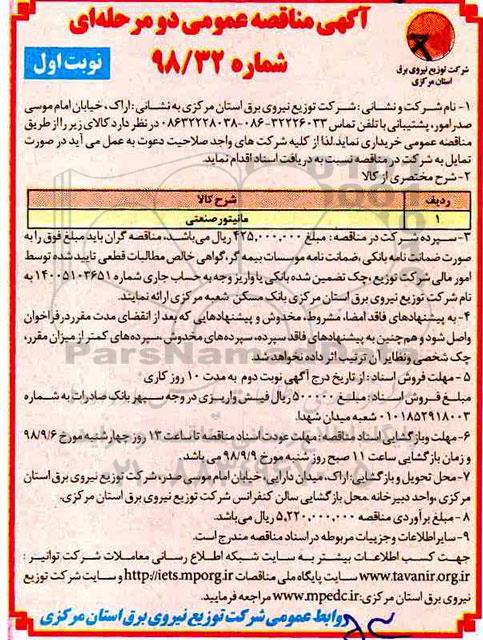 آگهی مناقصه عمومی دو مرحله‌ای
شماره ۹۸/۳۲
نوبت اول
شرکت توزیع نیروی برق
استان مرکزی
۱- نام شرکت و نشانی : شرکت توزیع نیروی برق استان مرکزی به نشانی : اراک ، خیابان امام موسی
صدر امور، پشتیبانی با تلفن تماس ۳۲۲۲۶۰۳۳-۰۸۶ ۰۸۶۳۲۲۲۸۰۳۸ در نظر دارد کالای زیر را از طریق
مناقصه عمومی خریداری نماید. لذا از کلیه شرکت های واجد صلاحیت دعوت به عمل می آید در صورت
تمایل به شرکت در مناقصه نسبت به دریافت اسناد اقدام نماید.
۲- شرح مختصری از کالا
ردیف شرح کالا
۱ مانیتور صنعتی
۳- سپرده شرکت در مناقصه : مبلغ ۴۲۵,۰۰۰,۰۰۰ ریال می‌باشد، مناقصه گران باید مبلغ فوق را به
صورت ضمانت نامه بانکی ،ضمانت نامه موسسات بیمه گر، گواهی خالص مطالبات قطعی تایید شده توسط
امور مالی شرکت توزیع ،چک تضمین شده بانکی یا واریز وجه به حساب جاری شماره ۱۴۰۰۵۱۰۳۶۵۱ به
نام شرکت توزیع نیروی برق استان مرکزی بانک مسکن شعبه مرکزی ارائه نمایند.
۴- به پیشنهادهای فاقد امضا، مشروط، مخدوش و پیشنهادهایی که بعد از انقضای مدت مقرر در فراخوان
واصل شود و هم چنین به پیشنهادهای فاقد سپرده، سپرده‌های مخدوش ،سپرده‌های کمتر از میزان مقرر،
چک شخصی و نظایر آن ترتیب اثر داده نخواهد شد.
۵- مهلت فروش اسناد: از تاریخ درج آگهی نوبت دوم به مدت ۱۰ روز کاری.
مبلغ فروش اسناد: مبلغ ۵۰۰,۰۰۰ ریال فیش واریزی در وجه سپهر بانک صادرات به شماره
۰۱۰۱۸۵۲۹۱۸۰۰۳ شعبه میدان شهدا.
۶- مهلت و بازگشایی اسناد مناقصه : مهلت عودت اسناد مناقصه تا ساعت ۱۳ روز چهارشنبه مورخ ۹۸/۹/۶
و زمان بازگشایی ساعت ۱۱ صبح روز شنبه مورخ ۹۸/۹/۹ می باشد.
۷- محل تحویل و بازگشایی : اراک، میدان دارایی، خیابان امام موسی صدر، شرکت توزیع نیروی برق استان
مرکزی ،واحد دبیرخانه. محل بازگشایی سالن کنفرانس شرکت توزیع نیروی برق استان مرکزی.
۸- مبلغ برآوردی مناقصه ۵,۲۲۰,۰۰۰,۰۰۰ ریال می‌باشد.
۹- سایر اطلاعات و جزییات مربوطه در اسناد مناقصه مندرج است.
جهت کسب اطلاعات بیشتر به سایت شبکه اطلاع رسانی معاملات شرکت توانیر :
www.tavanir.org.ir سایت پایگاه ملی مناقصات http://iets.mporg.ir و سایت شرکت توزیع
نیروی برق استان مرکزی: www.mpedc.ir مراجعه فرمایید.
روابط عمومی شرکت توزیع نیروی برق استان مرکزی